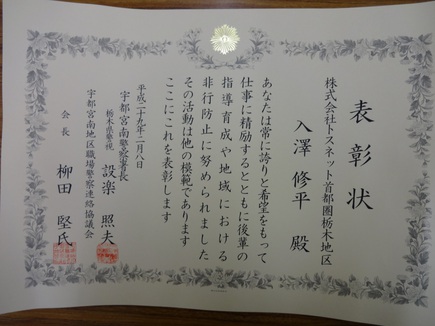 表彰状
株式会社トスネット首都圏栃木地区
入澤 修平 殿
あなたは常に誇りと希望をもって
仕事に精励するとともに後輩の
指導育成や地域における
非行防止に努められました
その活動は他の模範であります
ここにこれを表彰します
平成二十九年二月八日
宇都宮南警察署長
栃木県警視 設楽 照夫
宇都宮南地区職場警察連絡協議会
会長 柳田 堅氏